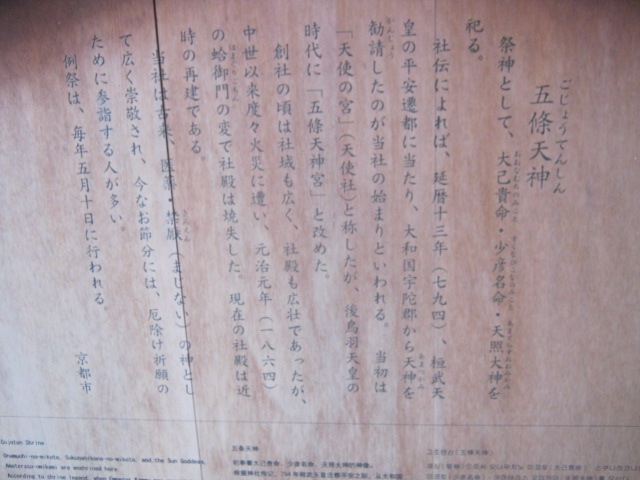 ごじょうてんしん
五條天神
祭神として、大己貴命・少彦名命・天照大神を
祀る。
社伝によれば、延暦十三年（七九四）、桓武天
皇の平安遷都に当たり、大和国宇陀郡から天神を
勧請したのが当社の始まりといわれる。当初は
「天使の宮」（天使社）と称したが、後鳥羽天皇の
時代に「五條天神宮」と改めた。
創社の頃は社域も広く、社殿も広壮であったが、
中世以来度々火災に遭い、元治元年（一八六四）
の蛤御門の変で社殿は焼失した。現在の社殿は近
時の再建である。
当社は古来、医薬・禁厭（まじない）の神とし
て広く崇敬され、今なお節分には、厄除け祈願の
ために参詣する人が多い。
例祭は、毎年五月十日に行われる。
京都市
Shrine
and the Sun Goddess,
are enshrined here
五条天神